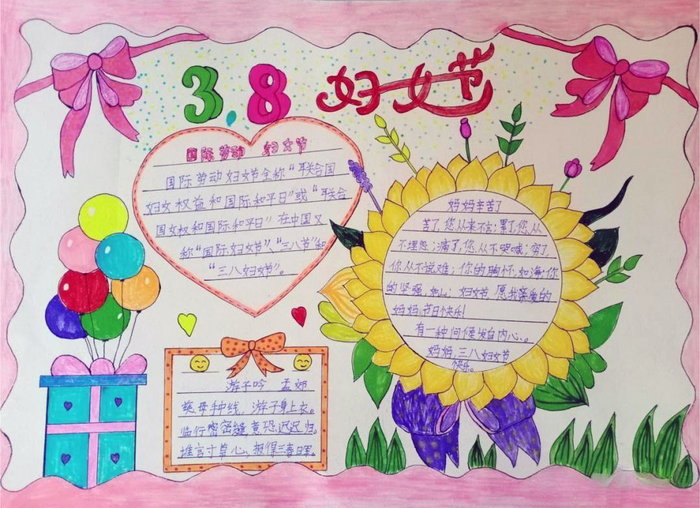 3.8 妇女节
国际劳动 妇女节
国际劳动妇女节全称"联合国
妇女权益和国际和平日"或"联合
国女权和国际和平日"在中国又
称"国际妇女节"、"三八节"和
"三八妇女节"。
妈妈辛苦了
苦了,您从来不言;累了,您从
不埋怨;痛了,您从不哭喊;穷了,
你从不避难;你的胸怀,如海,你
的坚强,如山;妇女节,愿我亲爱的
妈妈,节日快乐!
有一种问候发自内心。
妈妈,三八妇女节
快乐。
游子吟 孟郊
慈母手中线,游子身上衣。
临行密密缝,意恐迟迟归。
谁言寸草心,报得三春晖。